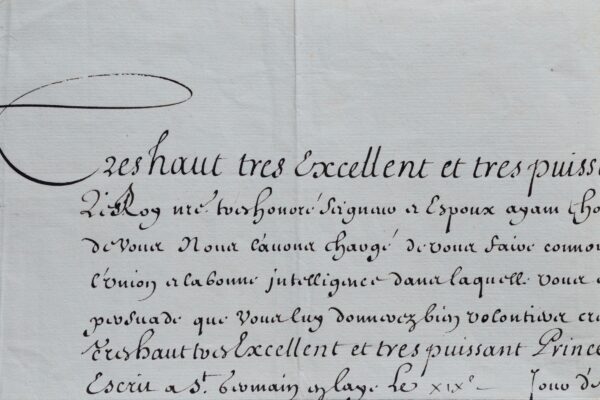 Tres haut tres Excellent et tres puiss
Le Roy nre. tres honoré Seigneur et Espoux ayant cho
de vous Nous l'avons chargé de vous faire connoi
l'Union et la bonne intelligence dans laquelle vous
persuade que vous luy donnerez bien volontiers cre
Tres haut tres Excellent et tres puissant Prince
Escrit a St. Germain en laye le XIXe. Jour de